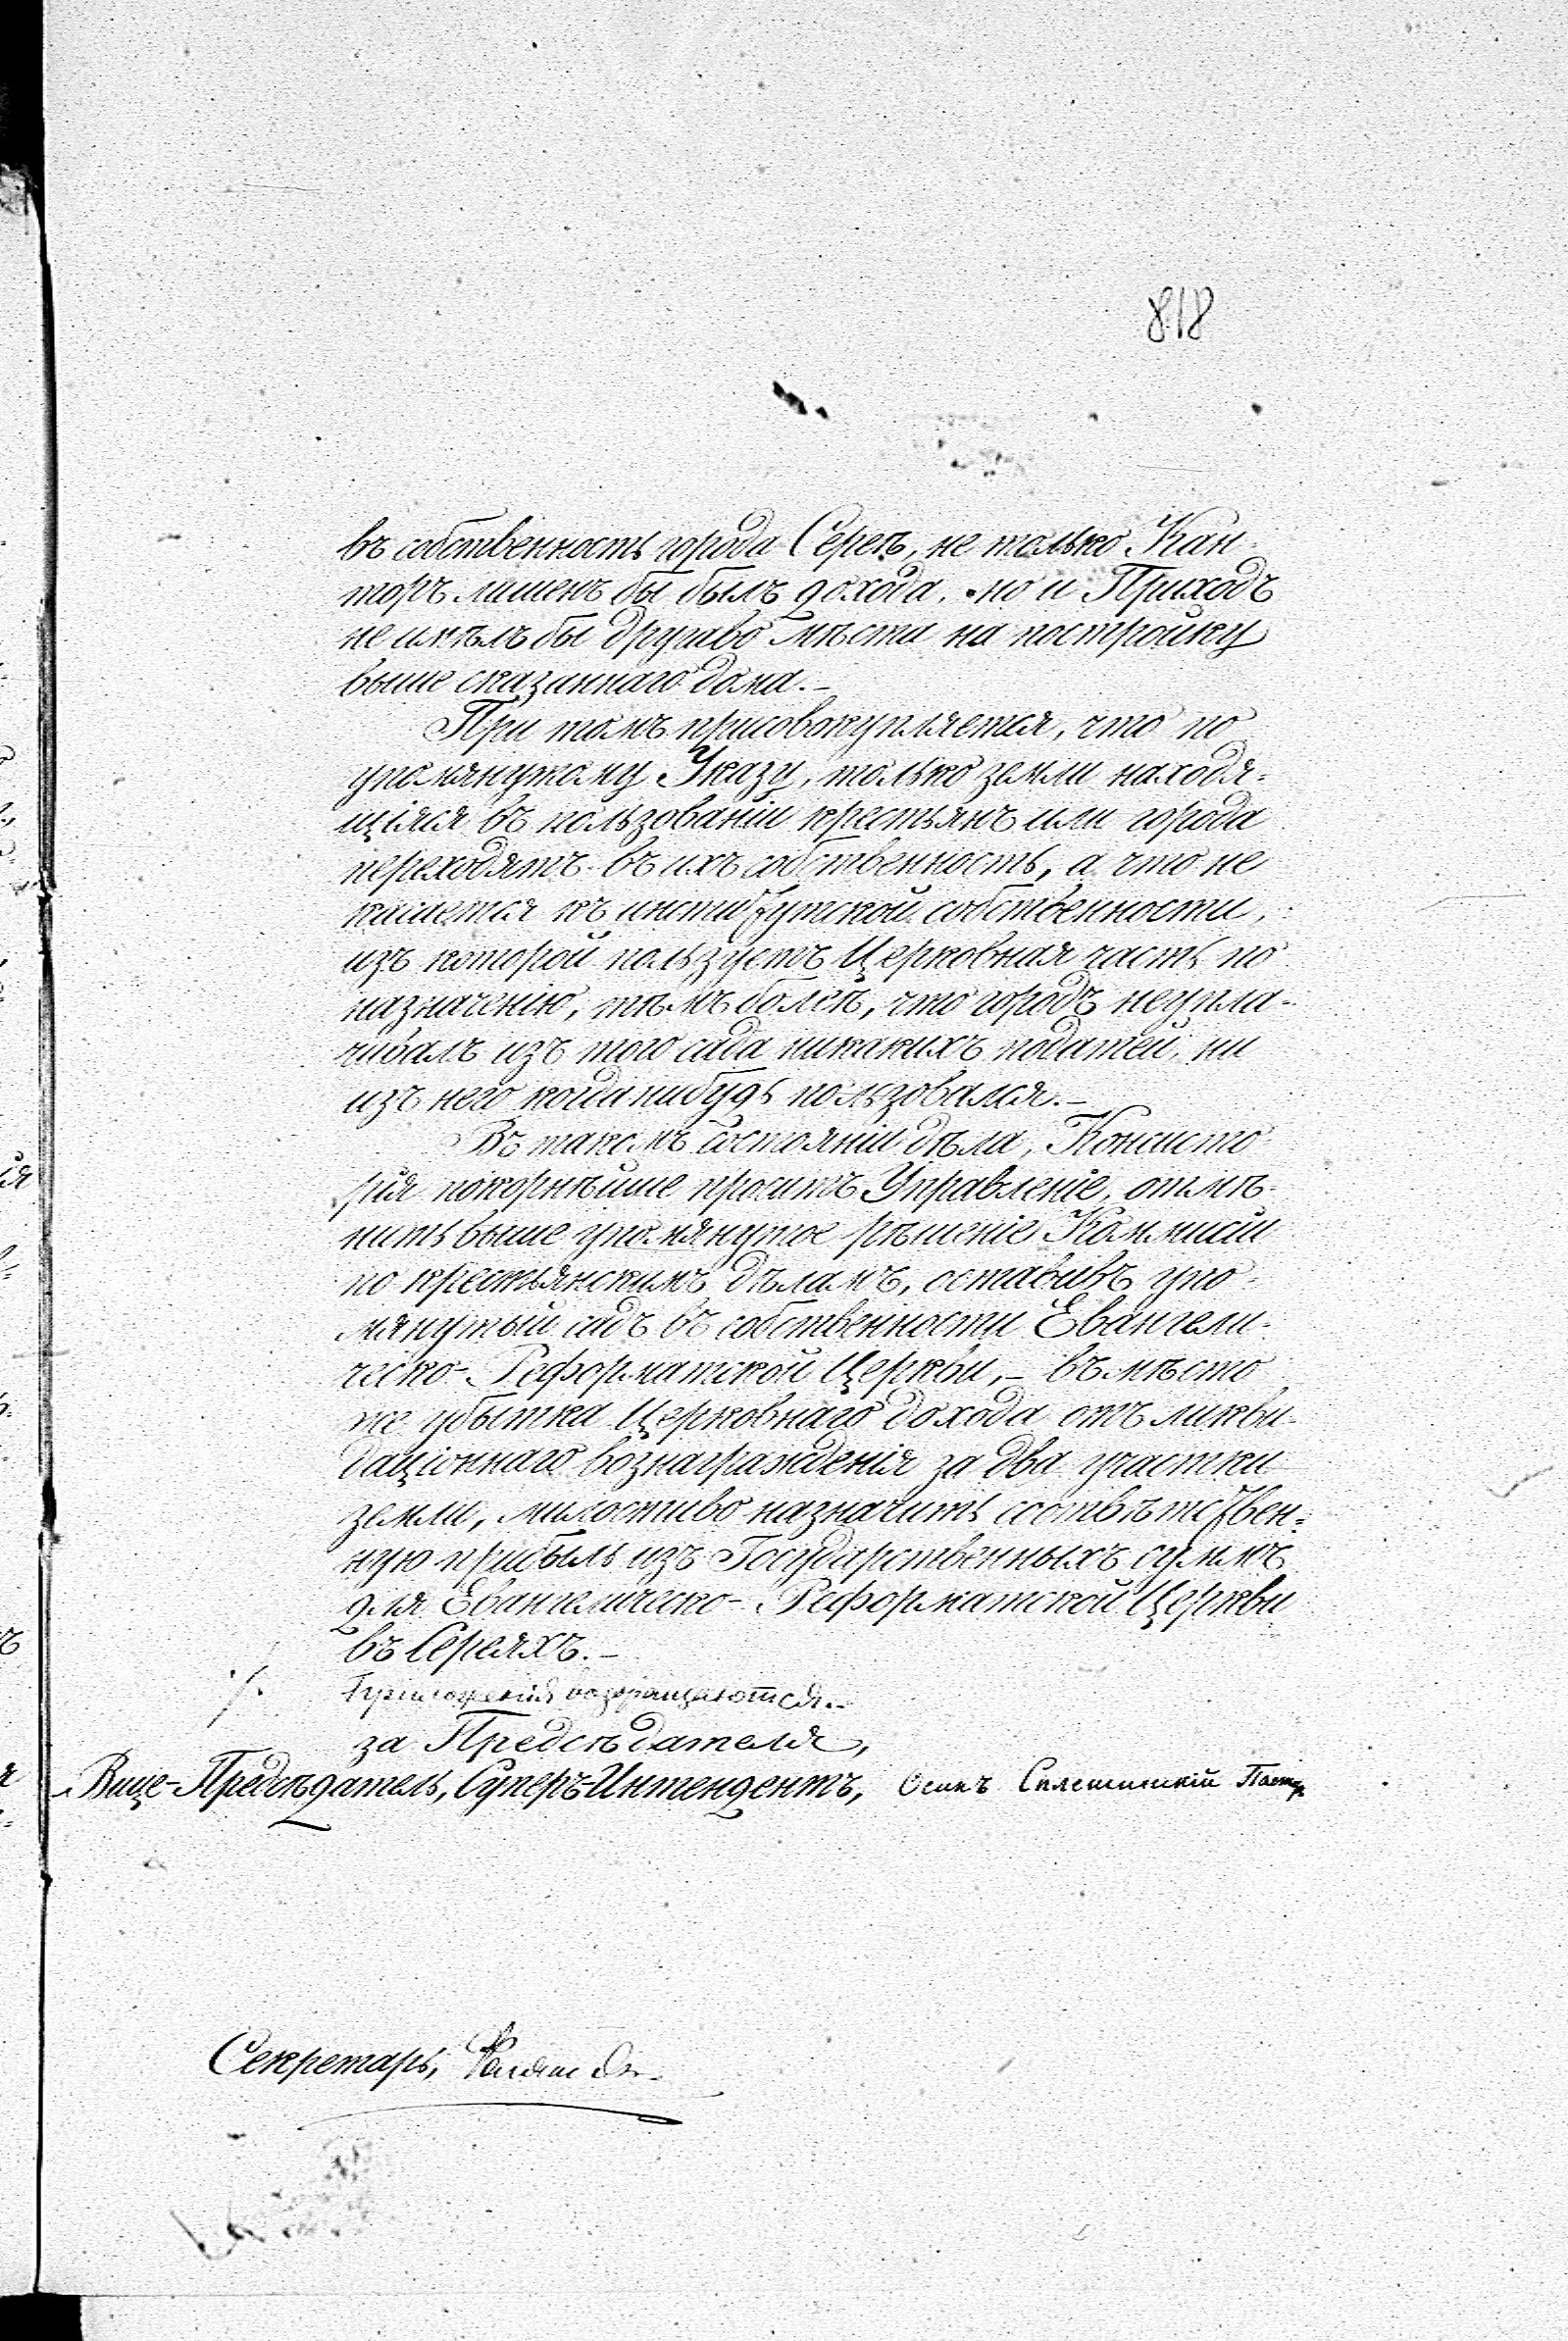 818
въ собственность города Серей, не только Кан
торъ лишенъ бы былъ дохода, но и Приходъ
не имѣлъ бы другаво мѣста на постройку
выше сказаннаго дома.-
При томъ присовокупляется, что по
упомянутому Указу, только земли находя-
щіяся въ пользованіи крестьянъ или города
переходятъ въ ихъ собственность, а что не
касается къ институтской собственности,
изъ которой пользуетъ Церковная часть по
назначенію, тѣмъ болѣе, что городъ неупла-
чивалъ изъ того сада никакихъ податей, ни
изъ него когда нибудь пользовался.-
Въ такомъ состояніи дѣла, Консисто
рія покорнѣйше проситъ Управленіе, отмѣ-
нить выше упомянутое рѣшеніе Коммисіи
по крестьянскимъ дѣламъ, оставивъ упо-
мянутый садъ въ собственности Евангели-
ческо-Реформатской Церкви,- въ мѣсто
же убытка Церковнаго дохода отъ ликви-
даціоннаго вознагражденія за два участки
земли, милостиво назначить соотвѣтствен-
ную прибыль изъ Государственныхъ суммъ
для Евангелическо-Реформатской Церкви
въ Сереяхъ.-
Приложенія возвращаются.-
за Предсѣдателя,
Вице-Предсѣдатель, Суперъ-Интендентъ, Осипъ Пасторъ
Секретарь,